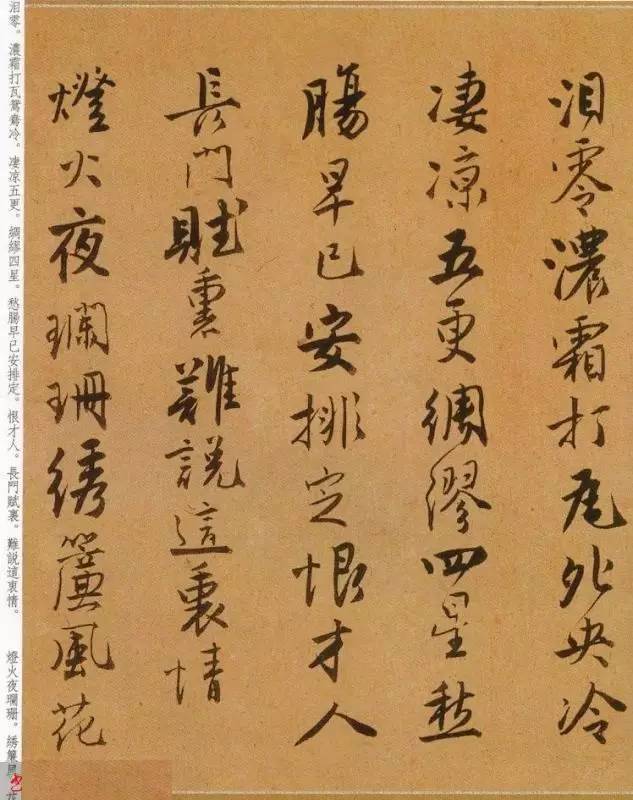 泪零濃霜打瓦夗央冷
凄凉五更綢繆四星愁
腸早已安排定恨才人
長門賦裏難説這衷情
燈火夜瓓珊綉簾風花
泪零。濃霜打瓦鴛鴦冷。凄凉五更。綢繆四星。愁腸早已安排定。恨才人。長門賦裏。難説這衷情。
燈火夜瓓珊。綉簾